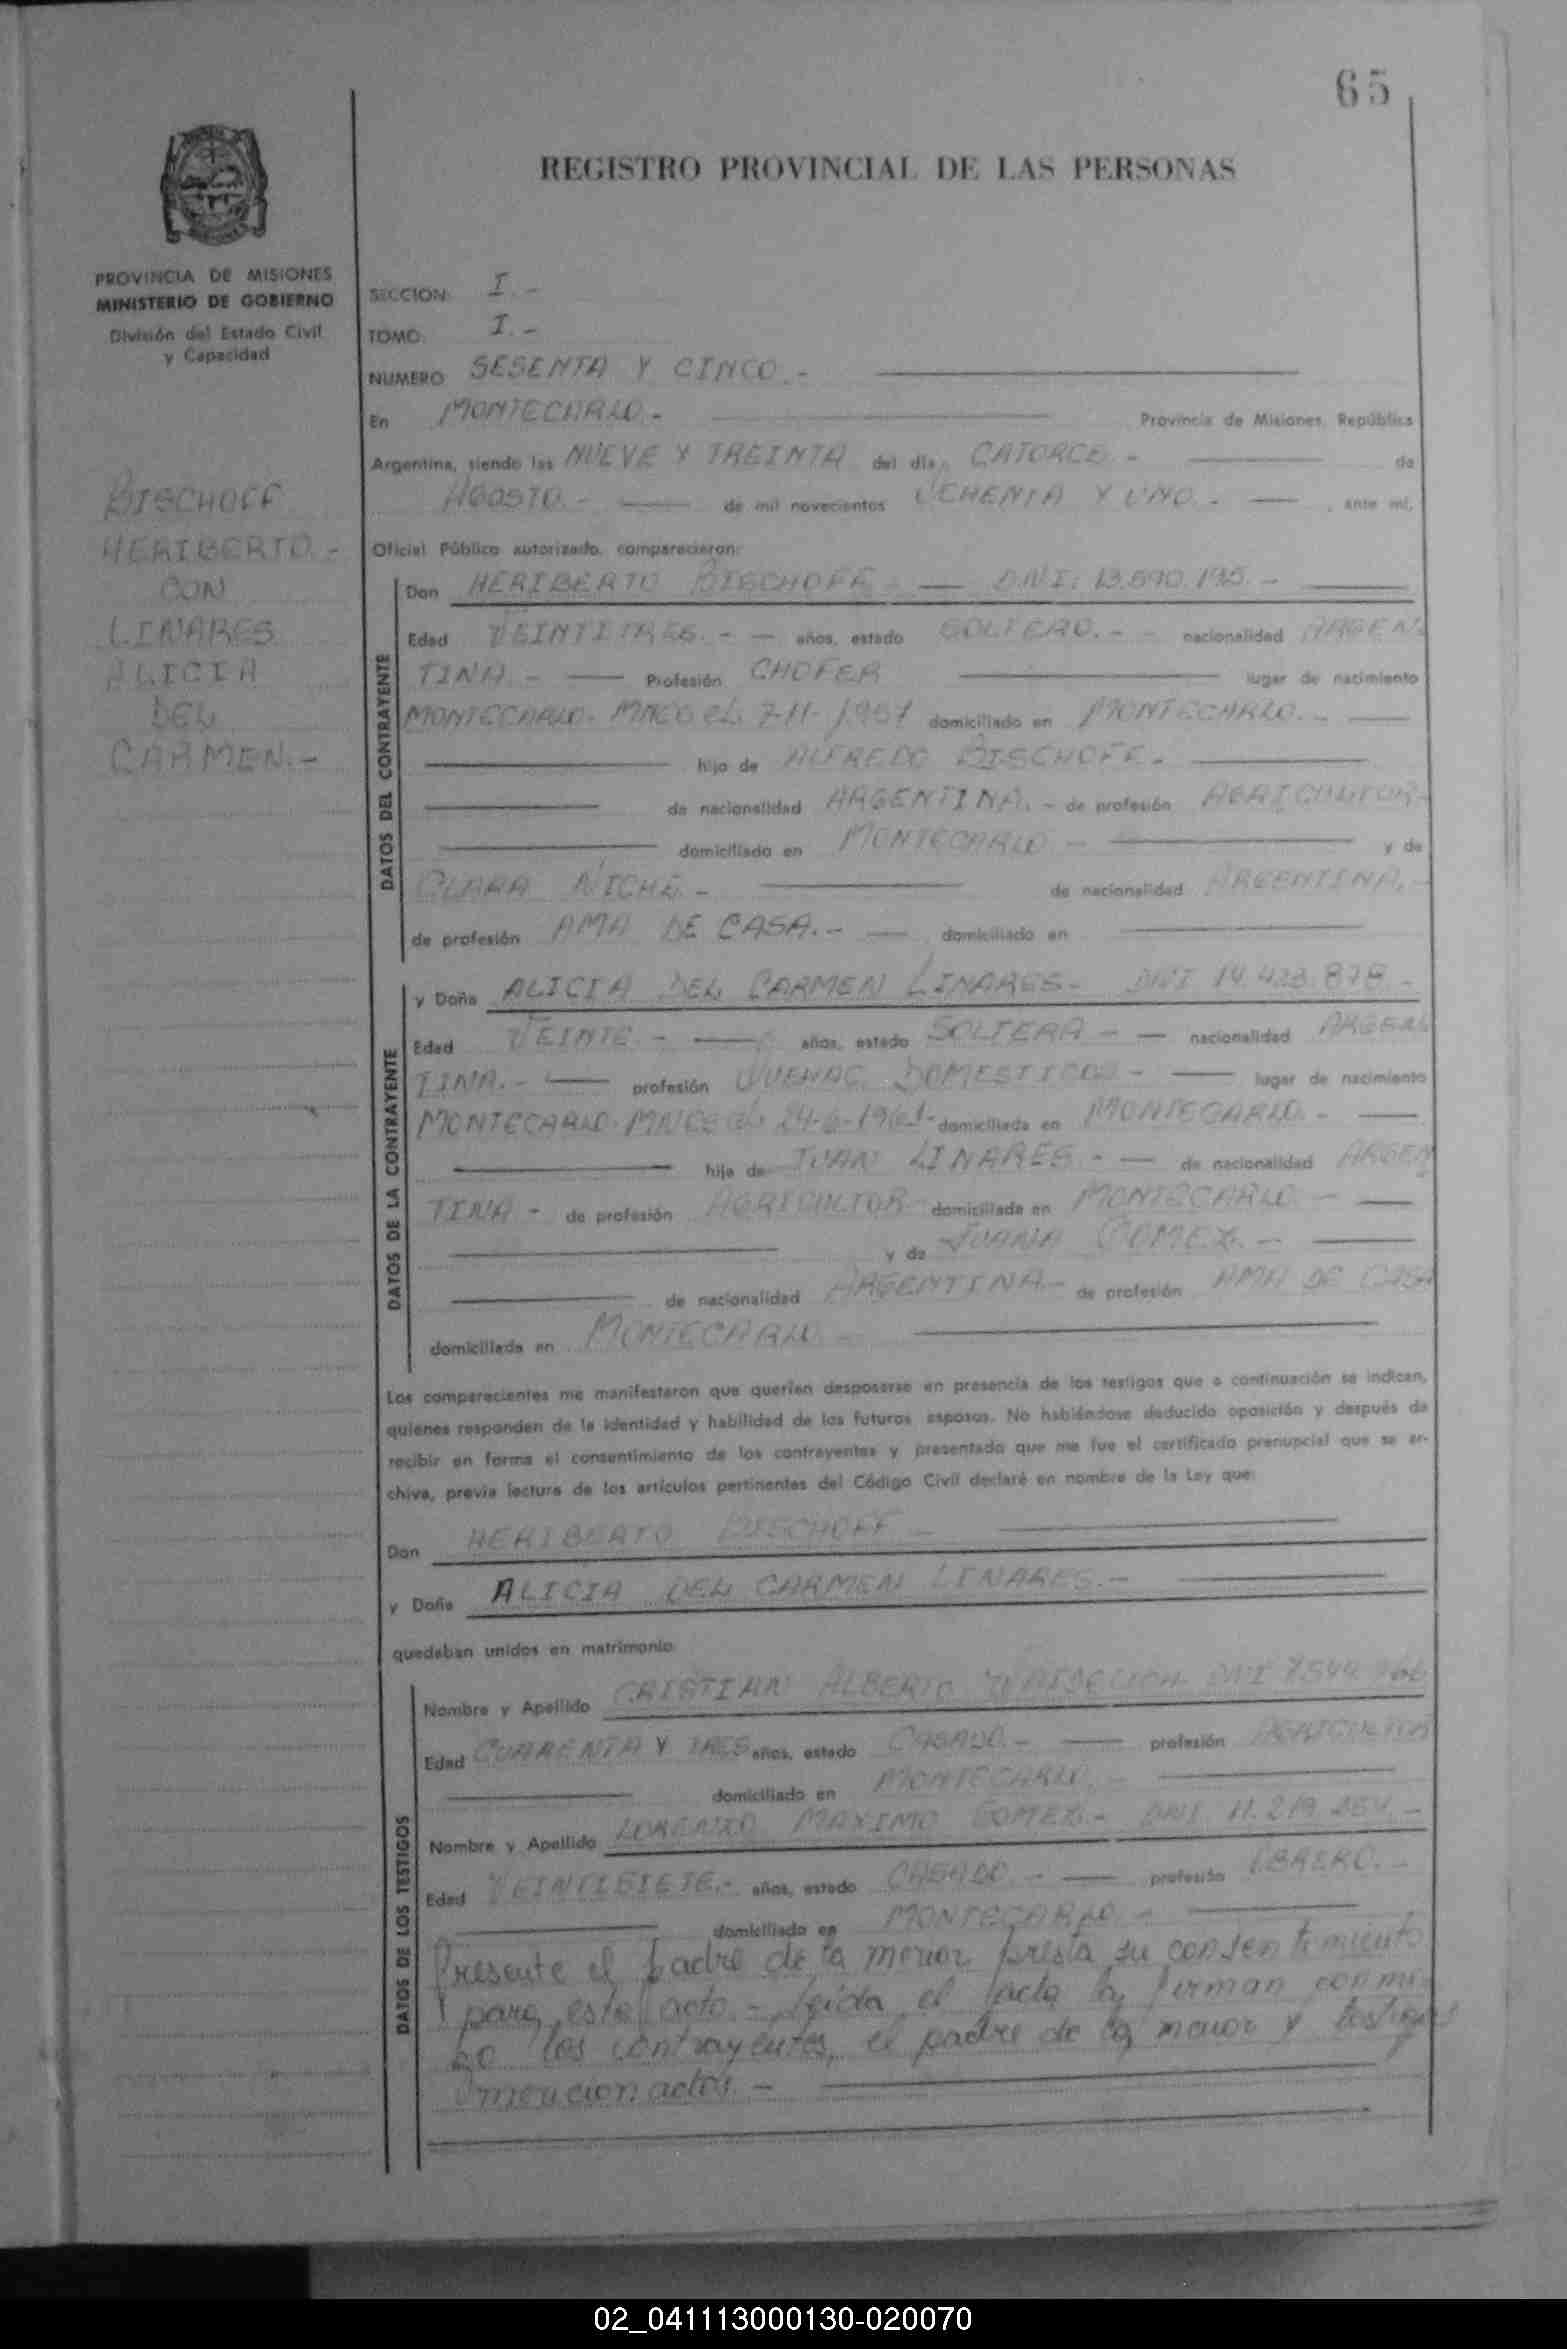 65
REGISTRO PROVINCIAL DE LAS PERSONAS
PROVINCIA DE MISIONES
MINISTERIO DE GOBIERNO
División del Estado Civil
y Capacidad
BISCHOFF
HERIBERTO.-
CON
LINARES
ALICIA
DEL
CARMEN.-
SECCION: I.-
TOMO: I.-
NUMERO SESENTA Y CINCO.-
En MONTECARLO.- Provincia de Misiones, República
Argentina, siendo las NUEVE Y TREINTA del día CATORCE.- de
AGOSTO.- de mil novecientos OCHENTA Y UNO.- , ante mí,
Oficial Público autorizado, comparecieron:
DATOS DEL CONTRAYENTE
Don HERIBERTO BISCHOFF.- DNI: 13.590.195.-
Edad VEINTITRES.- años, estado SOLTERO.- nacionalidad ARGEN
TINA.- Profesión CHOFER lugar de nacimiento
MONTECARLO. MNES EL 7-11-1957 domiciliado en MONTECARLO.-
hijo de ALFREDO BISCHOFF.-
de nacionalidad ARGENTINA.- de profesión AGRICULTOR-
domiciliado en MONTECARLO.- y de
CLARA NICHE.- de nacionalidad ARGENTINA.-
de profesión AMA DE CASA.- domiciliado en
DATOS DE LA CONTRAYENTE
y Doña ALICIA DEL CARMEN LINARES.- DNI 14.428.878.-
Edad VEINTE.- años, estado SOLTERA.- nacionalidad ARGEN
TINA.- profesión DOMESTICOS.- lugar de nacimiento
MONTECARLO. 1961- domiciliada en MONTECARLO.-
hija de JUAN LINARES.- de nacionalidad ARGEN
TINA- de profesión AGRICULTOR- domiciliado en MONTECARLO.-
y de JUANA GOMEZ.-
de nacionalidad ARGENTINA.- de profesión AMA DE CASA
domiciliada en MONTECARLO.-
Los comparecientes me manifestaron que querían desposarse en presencia de los testigos que a continuación se indican,
quienes responden de la identidad y habilidad de los futuros esposos. No habiéndose deducido oposición y después de
recibir en forma el consentimiento de los contrayentes y presentado que me fue el certificado prenupcial que se ar-
chiva, previa lectura de los artículos pertinentes del Código Civil declaré en nombre de la Ley que:
Don HERIBERTO BISCHOFF.-
y Doña ALICIA DEL CARMEN LINARES.-
quedaban unidos en matrimonio.
DATOS DE LOS TESTIGOS
Nombre y Apellido CRISTIAN ALBERTO DNI
Edad CUARENTA Y TRES años, estado CASADO.- profesión AGRICULTOR
domiciliado en MONTECARLO.-
Nombre y Apellido LORENZO MAXIMO GOMEZ.- DNI 11.219.
Edad VEINTISIETE.- años, estado CASADO.- profesión OBRERO.-
domiciliado en MONTECARLO.-
Presente el padre de la menor presta su consentimiento
para este acto.- Leida el acta la firman conmi
go los contrayentes, el padre de la menor y testigos
mencionados.-
02_041113000130-020070